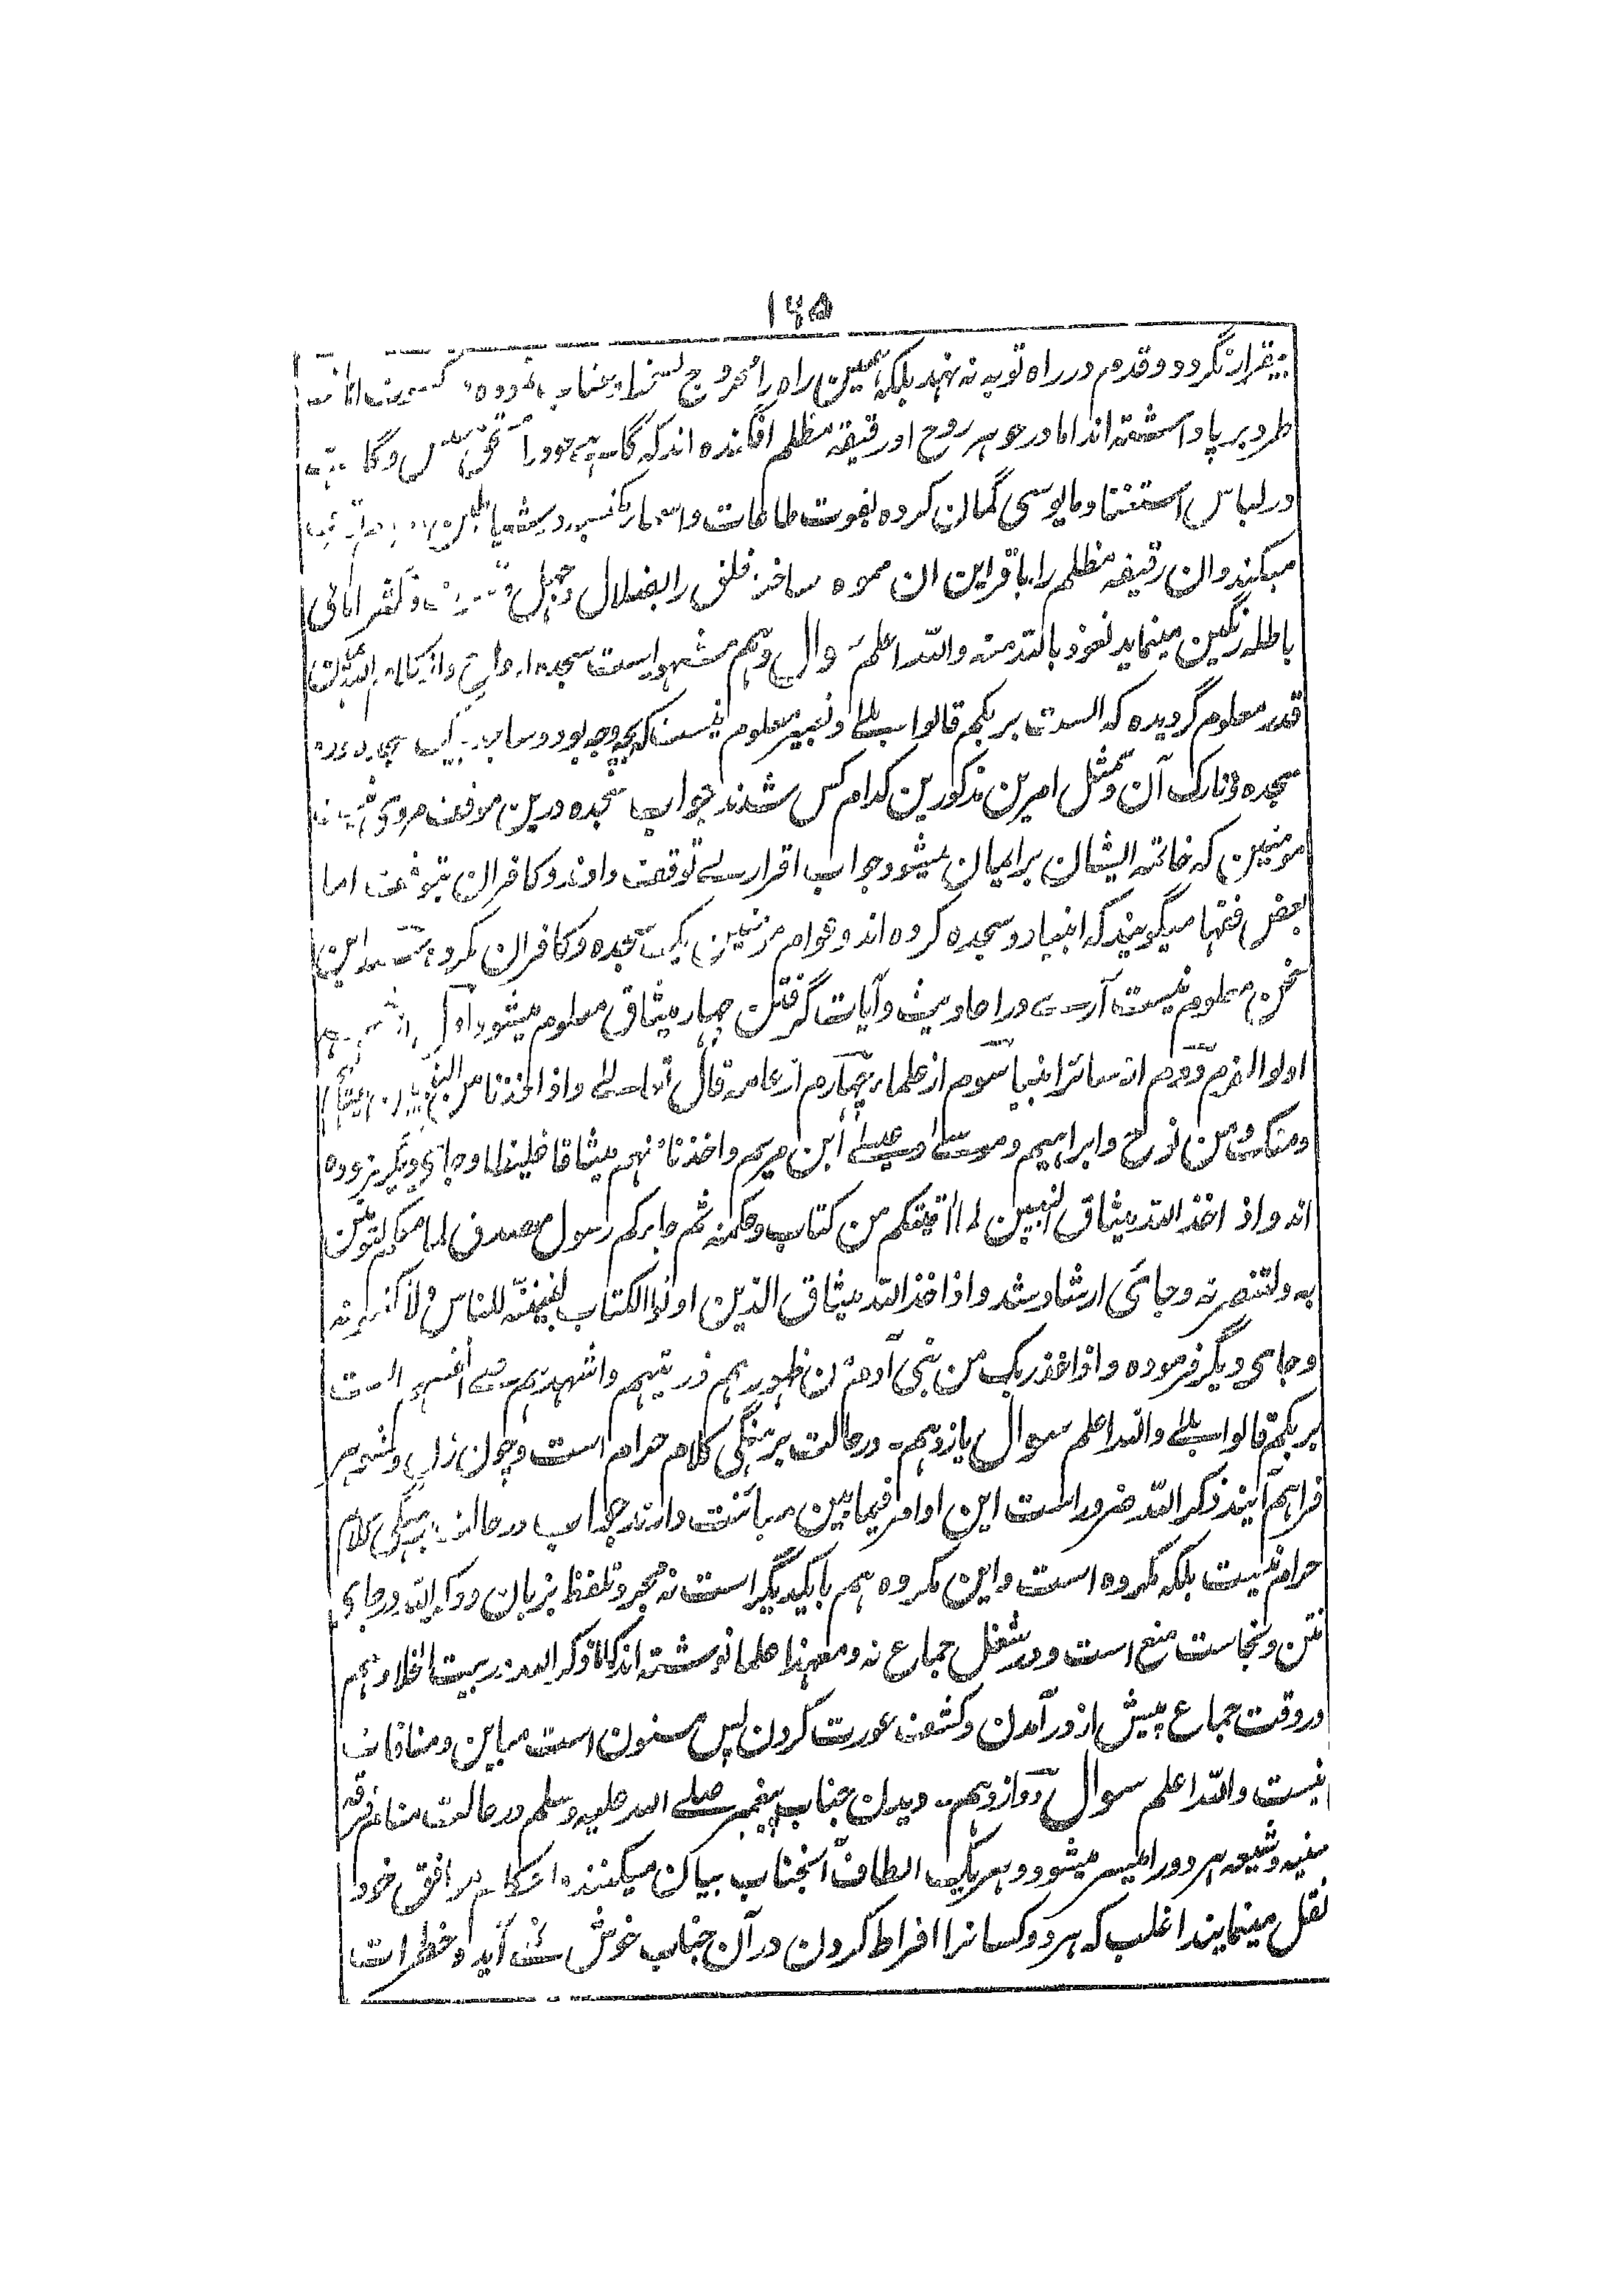 ۱۶۵
بیقرار نگردد و قدم در راه توبه نه نهد بلکه همین راه را
طرد بر پا داشته اند اما در جوهر روح او رقیقه مظلم افگنده اند که گاهے خود را و گا
در لباس استغنا و مایوسی گمان کرده بفوت طاعات و
میکند و ان رقیقه مظلم را باقراین ان مموه ساخته خلق را بضلال و جهل و کفر امانی
باطله رنگین مینماید نعوذ بالله منه والله اعلم سوال دهم مشهور است سجده
قدر معلوم گردیده که الست بربکم قالوا بلے و تعبیر معلوم نیست که بچه وجه بود و
سجده و تارک آن و تمثل امرین مذکورین کدام کس شدند جواب سجده درین موقف مروی
مومنین که خاتمه ایشان بر ایمان میشود جواب اقرار بے توقف دادند و کافران بتوقف اما
بعض فقها میگویند که انبیا دو سجده کرده اند و عوام مومنین یک سجده و کافران نکردند این
سخن معلوم نیست آرے در احادیث و آیات گرفتن چهار میثاق معلوم میشود اول از
اولوا العزم دوم از سائر انبیا سوم از علما چهارم از عامه قال تعالے واذ اخذنا من النبیین میثاقهم
ومنک ومن نوح وابراهیم وموسے وعیسے ابن مریم واخذنا منهم میثاقا غلیظا و جای دیگر فرموده
اند واذ اخذ الله میثاق النبیین لما اتیتکم من کتاب وحکمة ثم جاءکم رسول مصدق لما معکم لتومنن
به ولتنصرنه و جائی ارشاد شد واذ اخذ الله میثاق الذین اوتوا الکتاب لتبیننه للناس ولا تکتمونه
و جای دیگر فرموده واذ اخذ ربک من بنی آدم من ظهورهم ذریتهم واشهدهم علے انفسهم الست
بربکم قالوا بلے والله اعلم سوال یازدهم۔ در حالت برهنگی کلام حرام است و چون زن و شوهر
فراهم آیند ذکر الله ضرور است این اوامر فیما بین مبائنت دارند جواب در حالت برهنگی کلام
حرام نیست بلکه مکروه است و این مکروه هم بایکدیگر است نه مجرد تلفظ بزبان و ذکر الله در جای
نتن و نجاست منع است و در شغل جماع نه و معهذا علما نوشته اند که ذکر الله در بیت الخلا و هم
در وقت جماع پیش از در آمدن و کشف عورت کردن پس مسنون است مباین و منافات
نیست والله اعلم سوال دوازدهم۔ دیدن جناب پیغمبر صلے الله علیه وسلم در حالت منام فرقه
سنیه و شیعه هر دو را میسر میشود و هر یک الطاف آنجناب بیان میکنند و احکام موافق خود
نقل مینمایند اغلب که هر دو کسانرا افراط کردن در آن جناب خوش نمے آید و خطرات